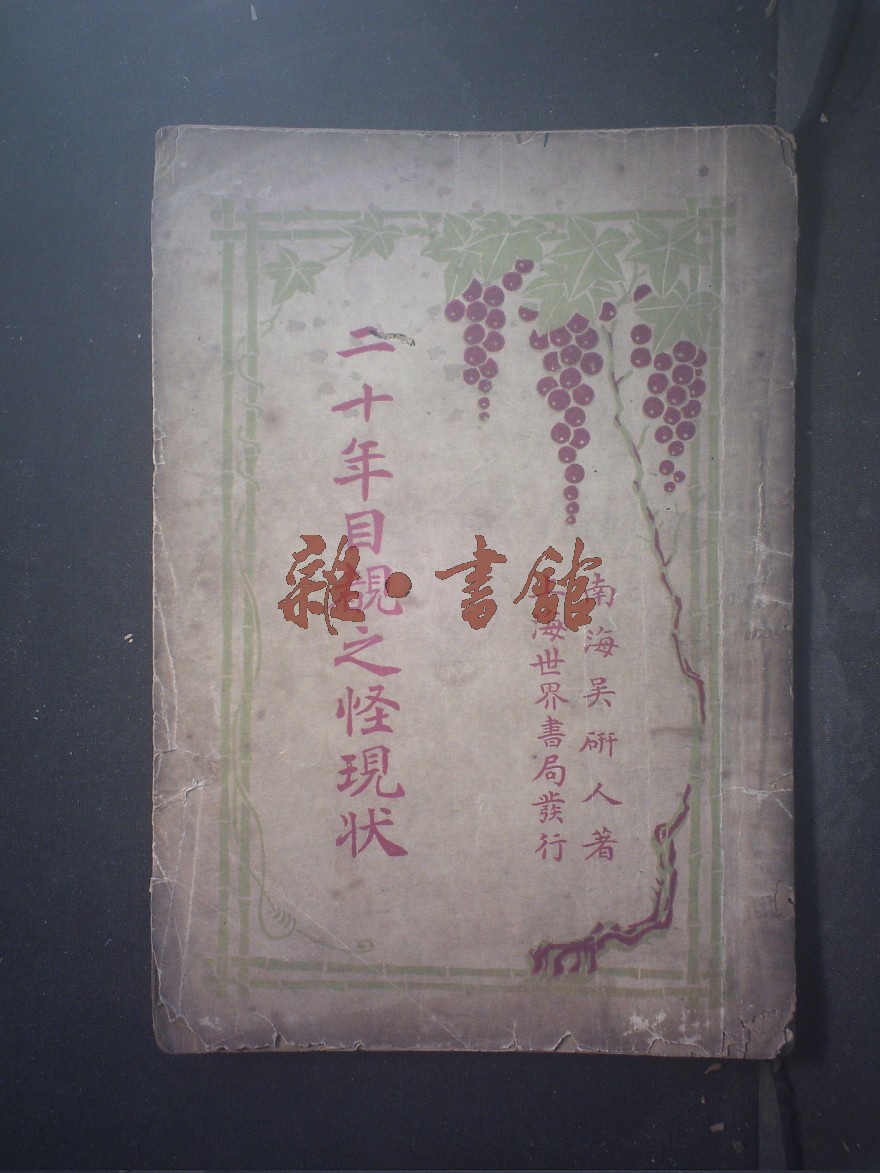 南海吴硏人著
海世界書局發行
二十年目覩之怪現状
雜·書館